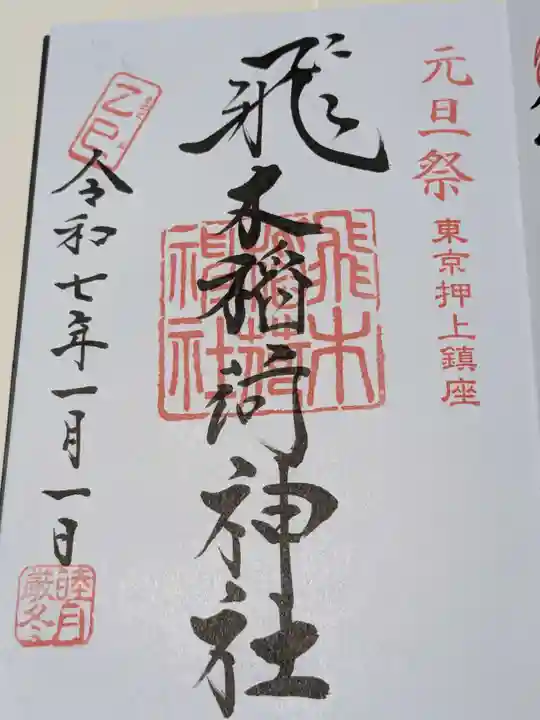 元旦祭
東京押上鎮座
飛木稲荷神社
飛木
稲荷
神社
乙巳
令和七年一月一日
睦月
厳冬